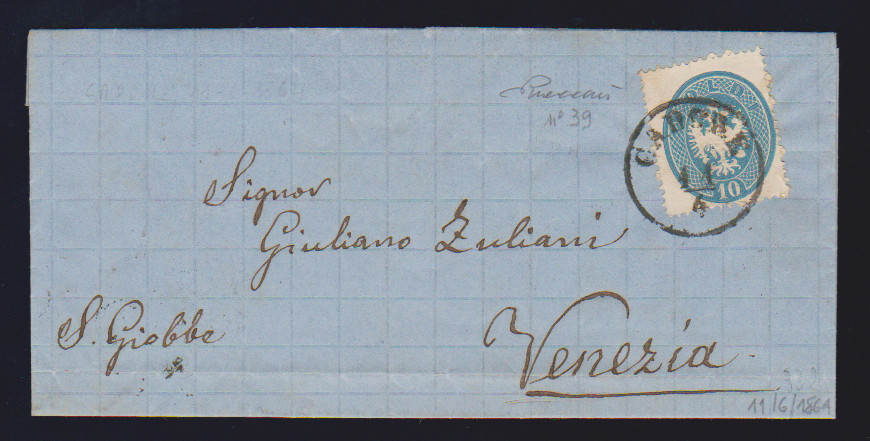 n° 39
CADORE
11
10
Signor
Giuliano Zuliani
S. Giobbe
Venezia
11/6/1864